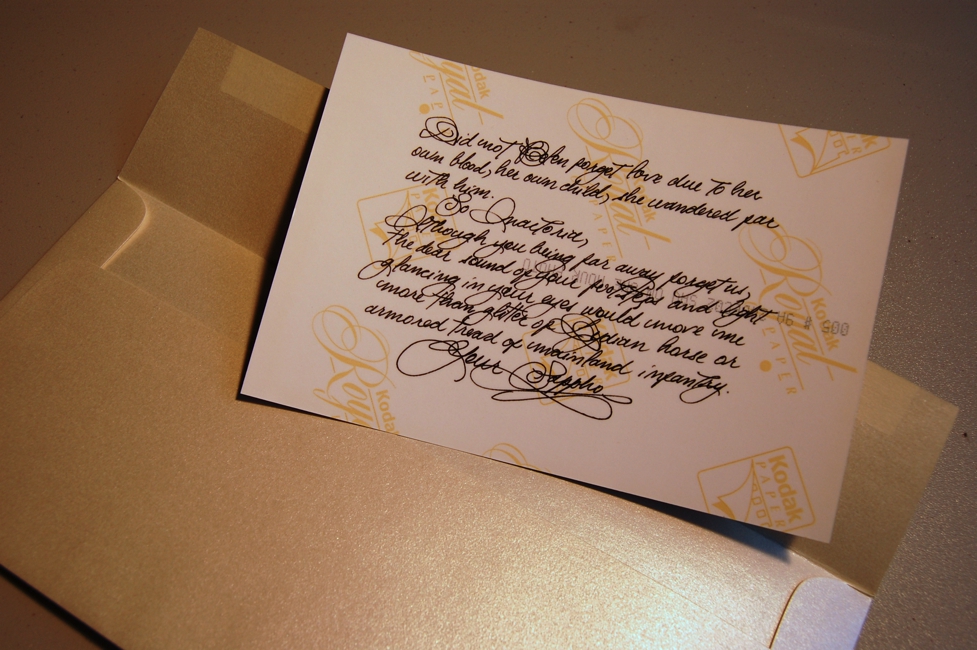 Did not Helen forget love due to her
own blood, her own child, she wandered far
with him.
So Anactoria,
Although you being far away forget us,
The dear sound of your footsteps and light
glancing in your eyes would move me
more than glitter of Lydian horse or
armored tread of mainland infantry.
Your Sappho
Kodak
Royal
PAPER
Royal
Kodak
PAPER
Royal
Kodak
PAPER
Royal
Kodak
Kodak
PAPER
005